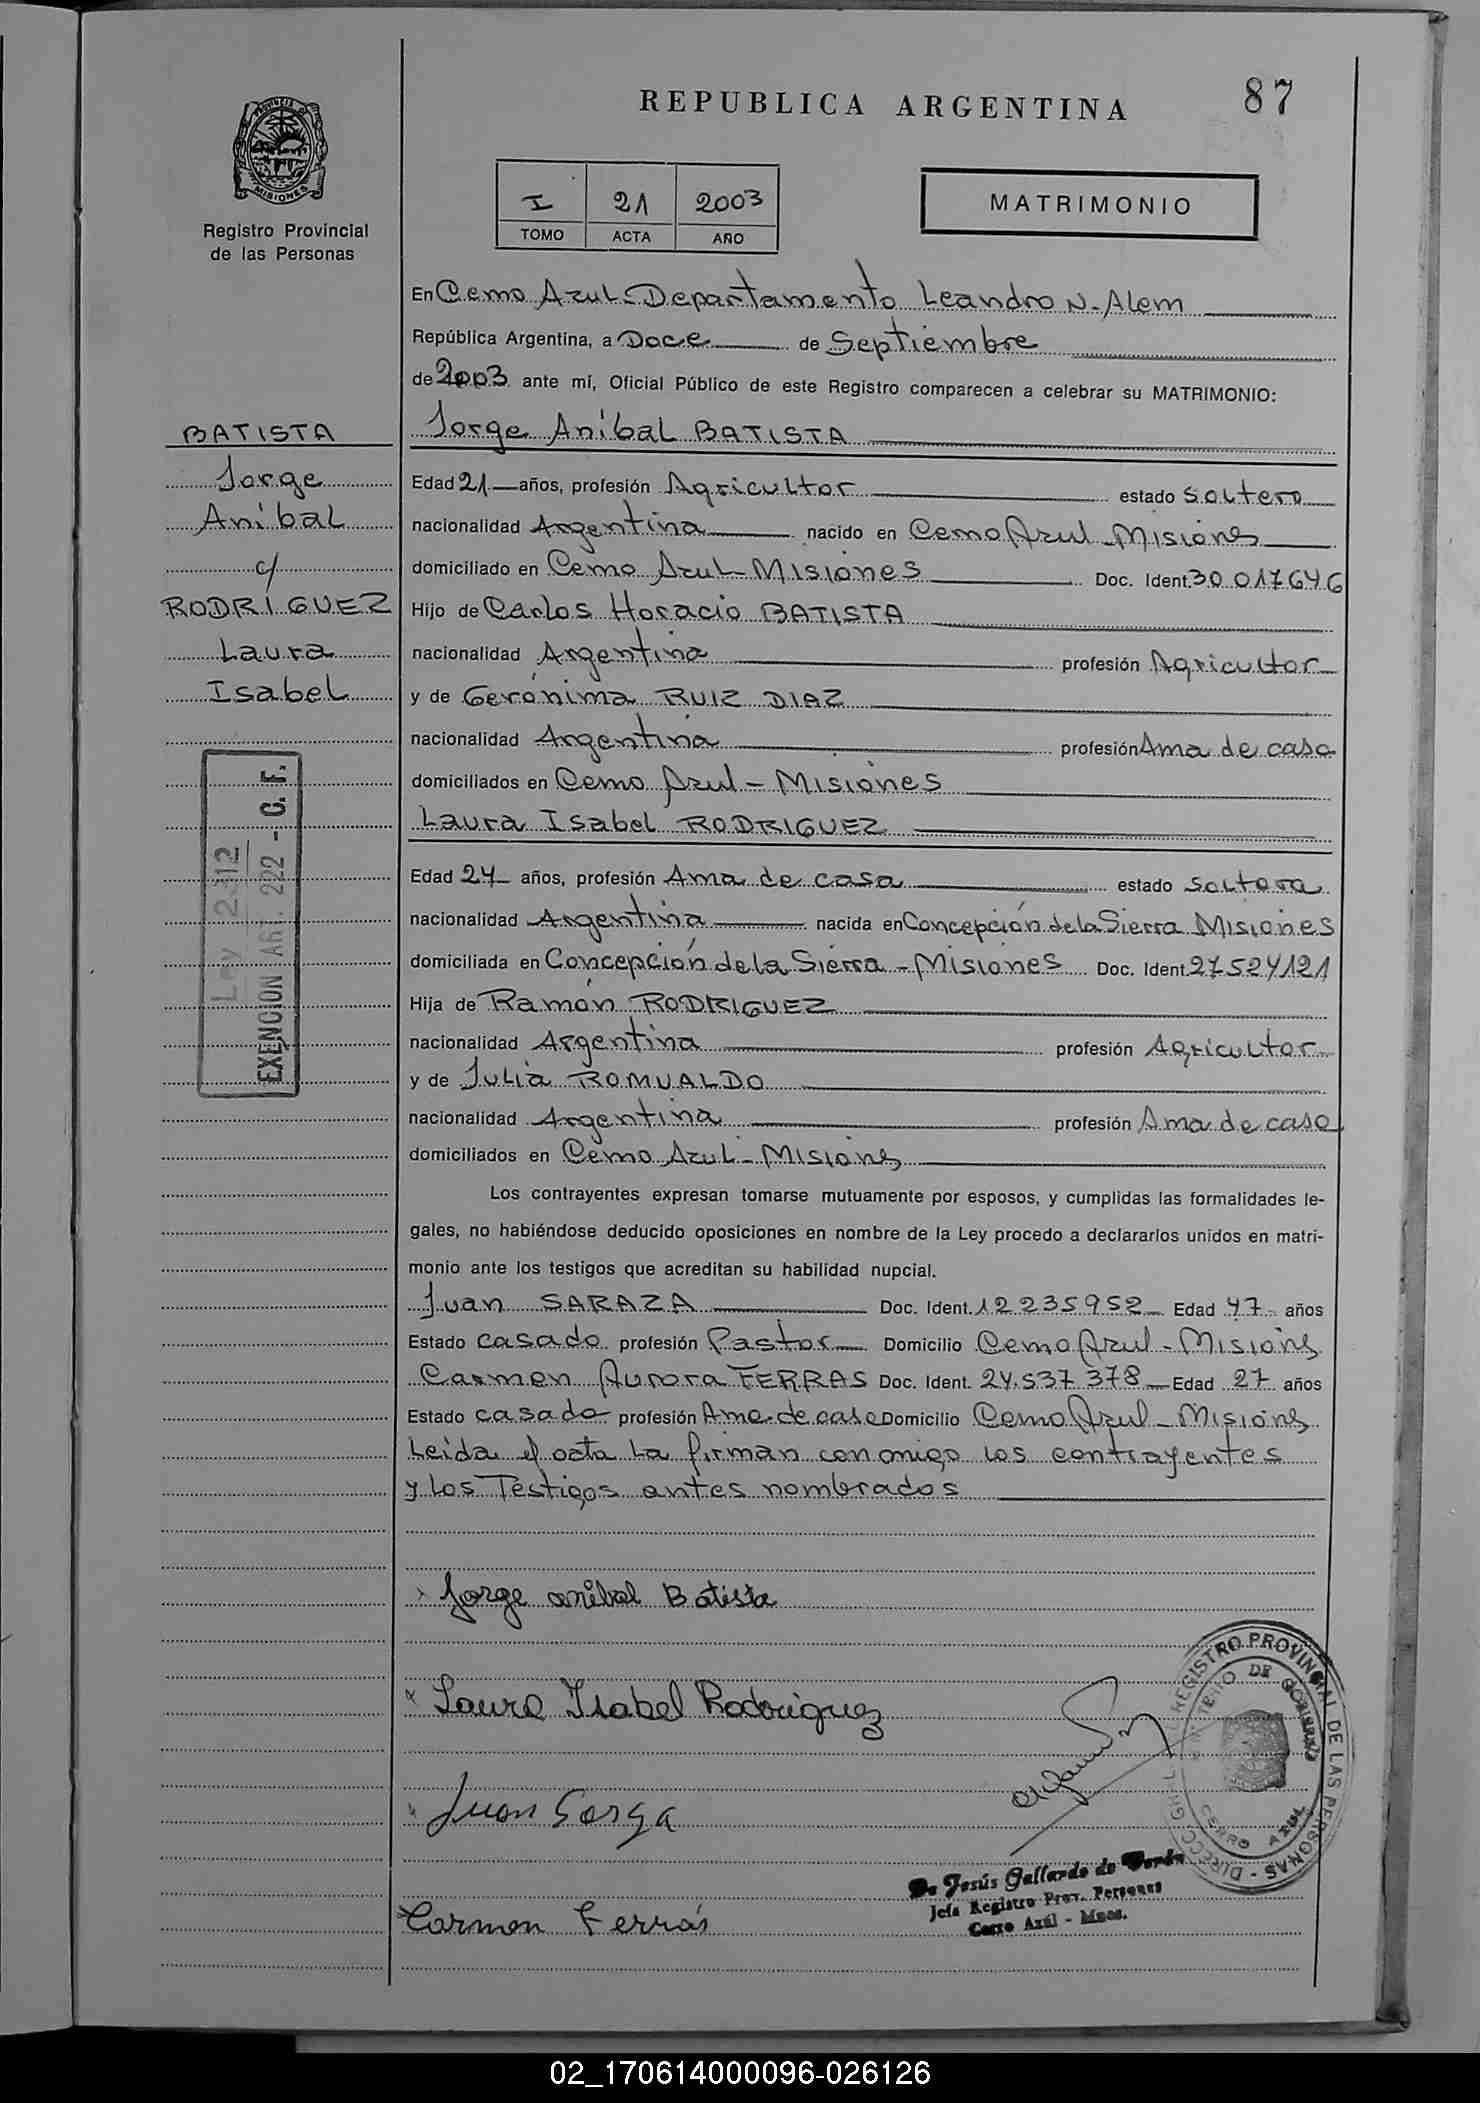 REPUBLICA ARGENTINA
87
PROVINCIA DE
MISIONES
Registro Provincial
de las Personas
I 21 2003
TOMO ACTA AÑO
MATRIMONIO
En Cerro Azul - Departamento Leandro N. Alem
República Argentina, a Doce de Septiembre
de 2003 ante mí, Oficial Público de este Registro comparecen a celebrar su MATRIMONIO:
BATISTA
Jorge
Aníbal
c/
RODRIGUEZ
Laura
Isabel
Ley 2312
EXENCION ART. 222 - C. F.
Jorge Aníbal BATISTA
Edad 21 años, profesión Agricultor estado soltero
nacionalidad Argentina nacido en Cerro Azul Misiones
domiciliado en Cerro Azul Misiones Doc. Ident. 30 017646
Hijo de Carlos Horacio BATISTA
nacionalidad Argentina profesión Agricultor
y de Gerónima RUIZ DIAZ
nacionalidad Argentina profesión Ama de casa
domiciliados en Cerro Azul - Misiones
Laura Isabel RODRIGUEZ
Edad 24 años, profesión Ama de casa estado soltera
nacionalidad Argentina nacida en Concepción de la Sierra Misiones
domiciliada en Concepción de la Sierra - Misiones Doc. Ident. 27524121
Hija de Ramón RODRIGUEZ
nacionalidad Argentina profesión Agricultor
y de Julia ROMUALDO
nacionalidad Argentina profesión Ama de casa
domiciliados en Cerro Azul - Misiones
Los contrayentes expresan tomarse mutuamente por esposos, y cumplidas las formalidades le-
gales, no habiéndose deducido oposiciones en nombre de la Ley procedo a declararlos unidos en matri-
monio ante los testigos que acreditan su habilidad nupcial.
Juan SARAZA Doc. Ident. 12235952 Edad 47 años
Estado casado profesión Pastor Domicilio Cerro Azul - Misiones
Carmen Aurora FERRAS Doc. Ident. 24.537 378 Edad 27 años
Estado casada profesión Ama de casa Domicilio Cerro Azul - Misiones
Leida el acta la firman conmigo los contrayentes
y los Testigos antes nombrados
Jorge anibal Batista
Laura Isabel Rodriguez
Juan
Carmen Ferrás
REGISTRO PROVINCIAL DE LAS PERSONAS - DIRECC. GRAL.
DE GOBIERNO
CERRO AZUL
Jesús Gallardo de
Jefa Registro Prov. Personas
Cerro Azúl - Mnes.
02_170614000096-026126